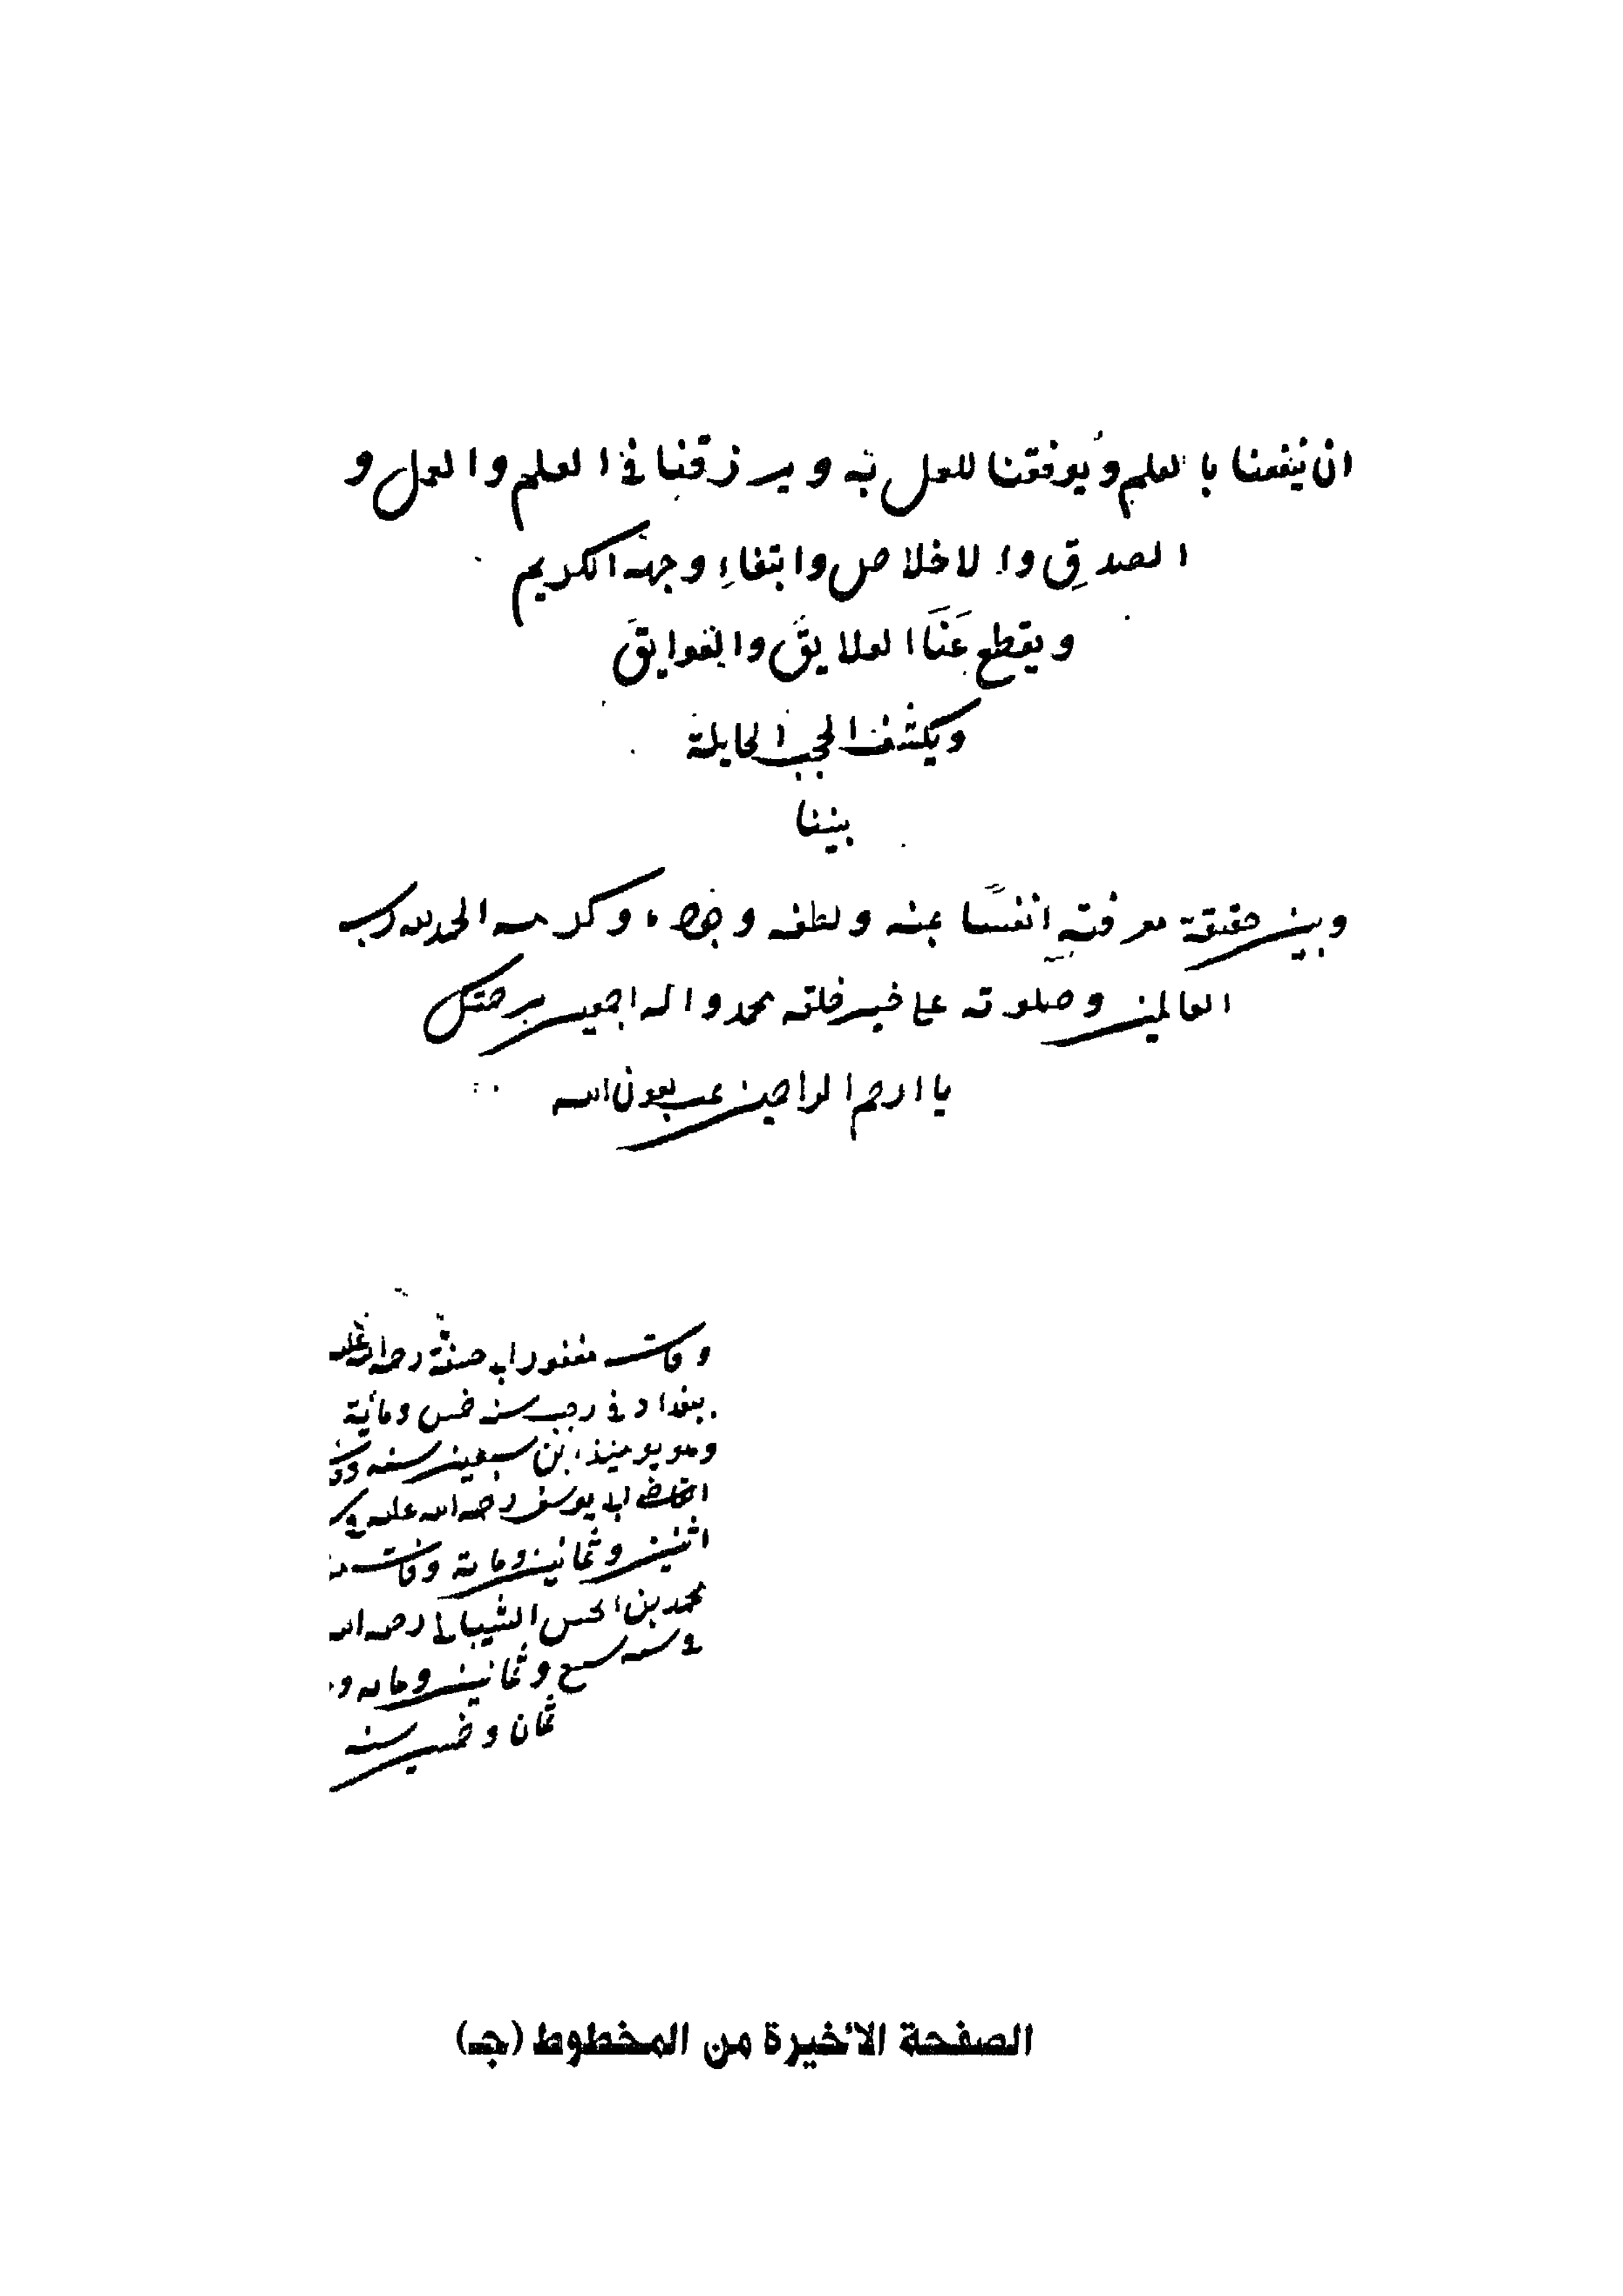 ان ينفعنا بالعلم ويوفقنا للعمل به ويرزقنا في العلم والعمل و
الصدق والاخلاص وابتغاء وجهه الكريم
ويقطع عنا العلايق والعوايق
ويكشف الحجب الحايلة
بيننا
وبين حقيقة معرفته انفسنا بمنه ولطفه وجوده وكرمه الحمد لله رب
العالمين وصلوته على خير خلقه محمد واله اجمعين برحمتك
يا ارحم الراحمين بعون الله
وفات ابي حنيفة رحمة الله عليه
ببغداد في رجب سنه خمس ومائية
وهو يومئذ ابن سبعين سنه
ابي يوسف رحمه الله عليه
اثنين وثمانين ومايه وفات
محمد بن الحسن الشيباني رحمه الله
سنه سبع وثمانين ومايه
ثمان وخمسين سنه
الصفحة الأخيرة من المخطوط (جـ)